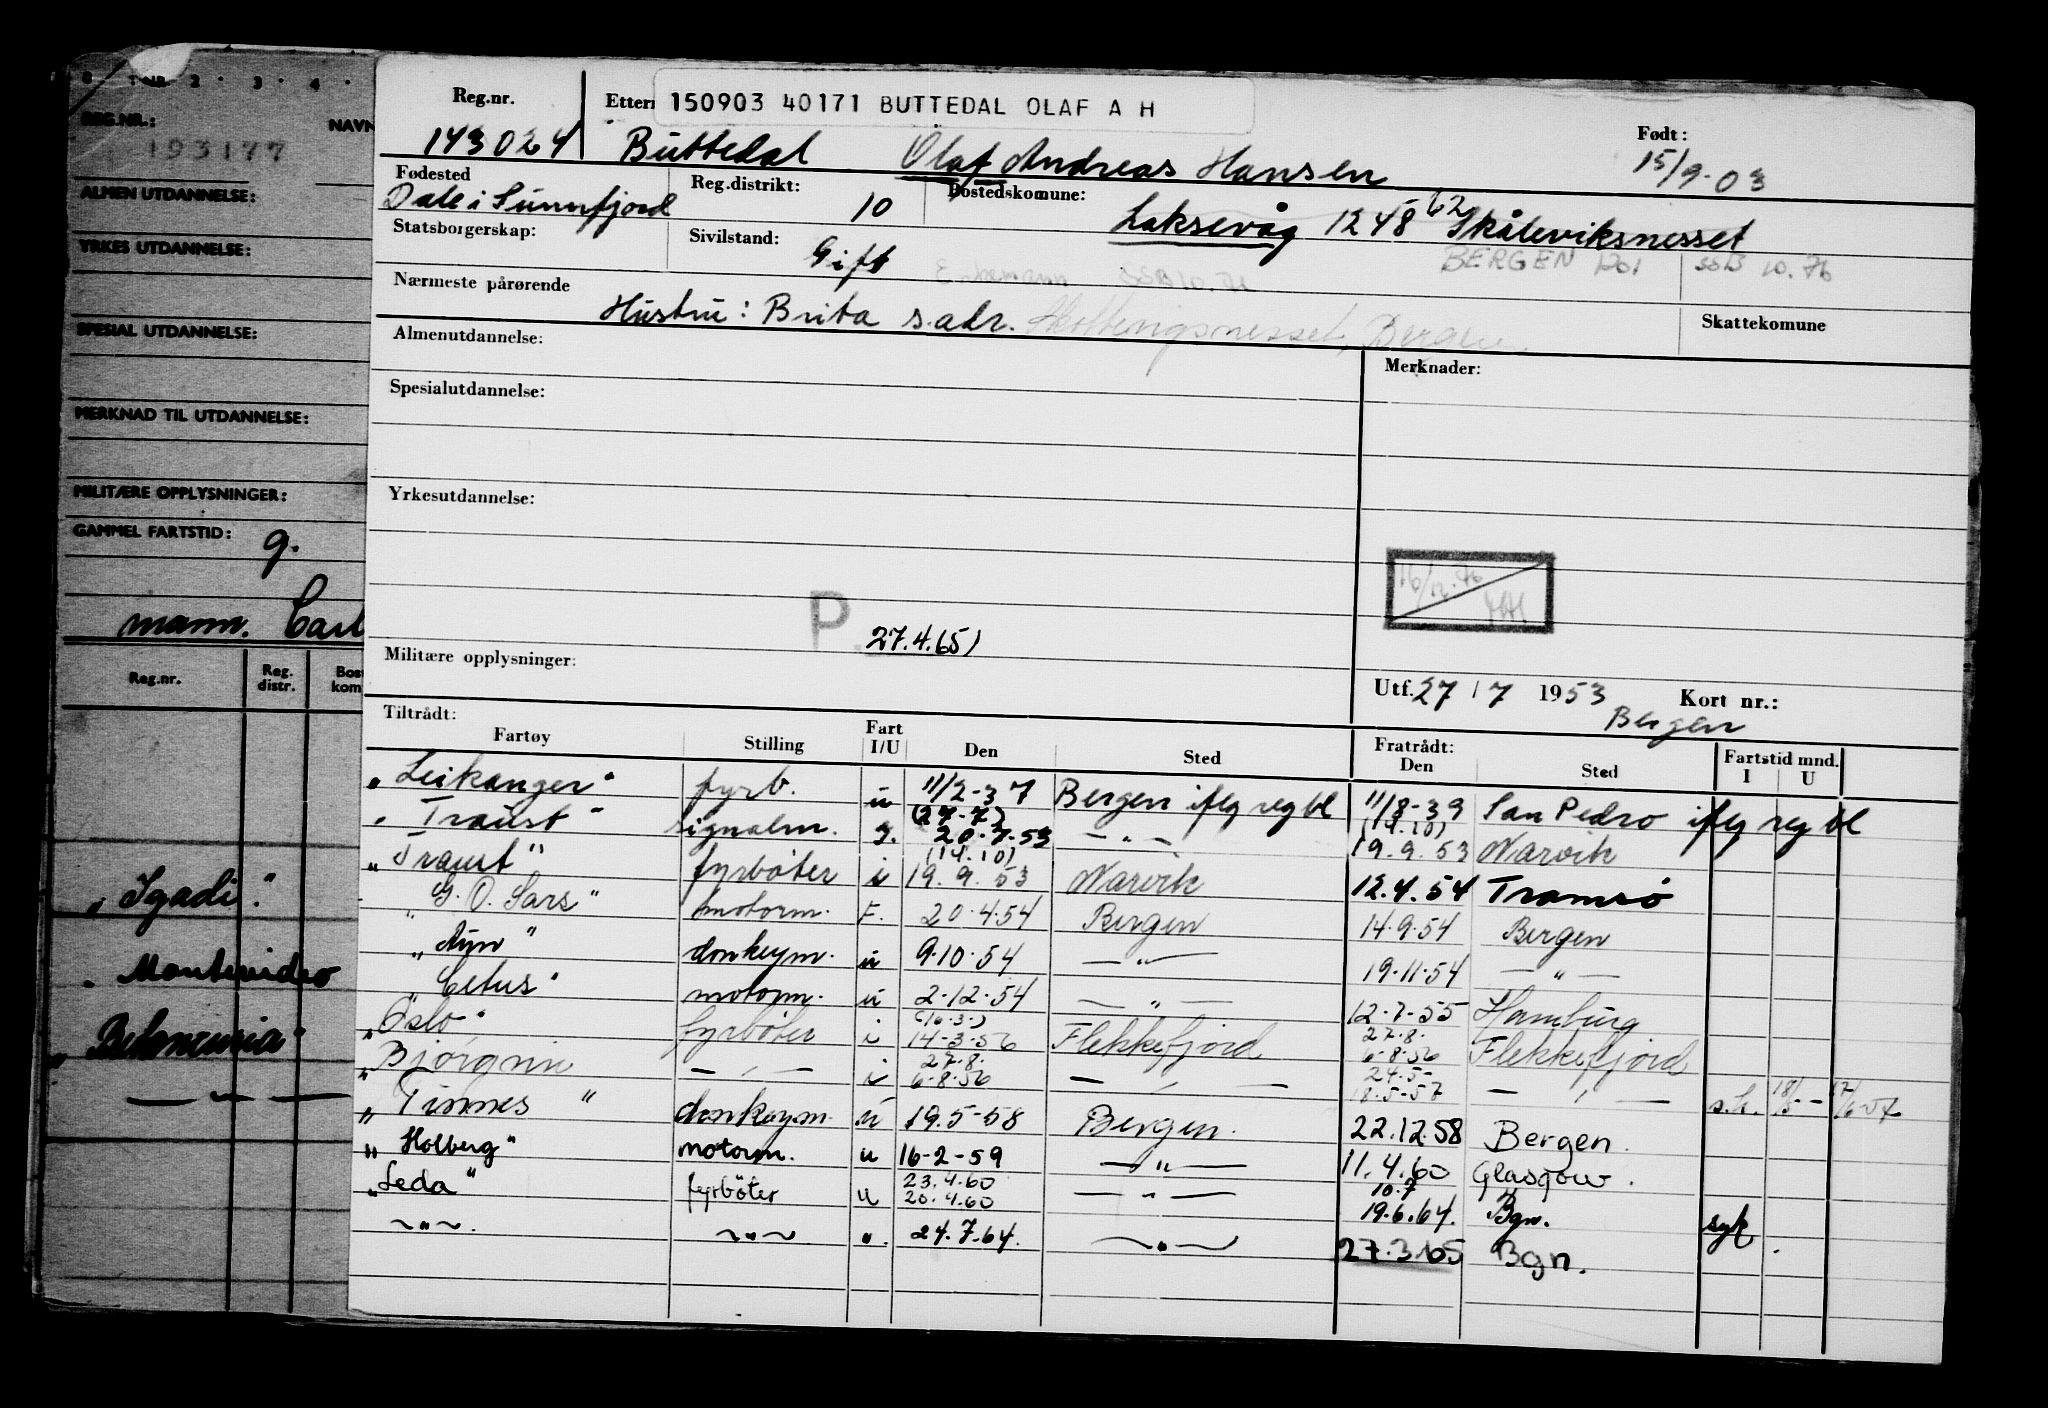 REG.NR.: NAVN
193177
ALMEN UTDANNELSE:
YRKES UTDANNELSE:
SPESIAL UTDANNELSE:
MERKNAD TIL UTDANNELSE:
MILITÆRE OPPLYSNINGER:
GAMMEL FARTSTID: g.
mann. Carl
Reg.nr. Reg. distr. Bost kom
"Igadi"
"Montevideo
— " —
Reg.nr. Ettern 150903 40171 BUTTEDAL OLAF A H Født:
143024 Buttedal Olaf Andreas Hansen 15/9-03
Fødested Reg.distrikt: Bostedskomune:
Dale i Sunnfjord 10 Laksevåg 1248 62 Skåleviksnesset
Statsborgerskap: Sivilstand: Gift BERGEN 1201 SSB 10.76
Nærmeste pårørende Hustru: Brita s.adr. Bergen Skattekomune
Almenutdannelse: Merknader:
Spesialutdannelse:
Yrkesutdannelse:
16/12.76
P 27.4.65)
Militære opplysninger:
Utf. 27 / 7 1953 Kort nr.:
Bergen
Tiltrådt: Fratrådt: Fartstid mnd.
Fartøy Stilling Fart I/U Den Sted Den Sted I U
"Leikanger" fyrb. u 11/2-37 Bergen iflg reg bl 11/8-39 San Pedro iflg reg bl
(27-7) (14.10)
"Traust" signalm. 20.7.53 — " — 19.9.53 Narvik
(14.10)
"Traust" fyrbøter i 19.9.53 Narvik 12.4.54 Tromsø
"G. O. Sars" motorm. F. 20.4.54 Bergen 14.9.54 Bergen
donkeym. u 9.10.54 — " — 19.11.54 — " —
"Cetus" motorm. u 2.12.54 — " — 12-7-55 Hamburg
(16.3.) 27.8.
"Oslo" fyrbøter i 14-3-56 Flekkefjord 6-8-56 Flekkefjord
27.8. 24.5-
"Bjørgvin — " — i 6-8-56 — " — 18.5-57 — " — s.h. 18/5 — 17/6-57
"Tinnes" donkeym. u 19.5-58 Bergen. 22.12.58 Bergen.
"Holberg" motorm. u 16-2-59 — " — 11.4.60 Glasgow.
23.4.60 10.7
"Leda" fyrbøter u 20.4.60 — " — 19.6.64. Bgn. syk.
~ " ~. ~ " ~ ". 24.7.64. ~ " ~ 27.3.65 Bgn.